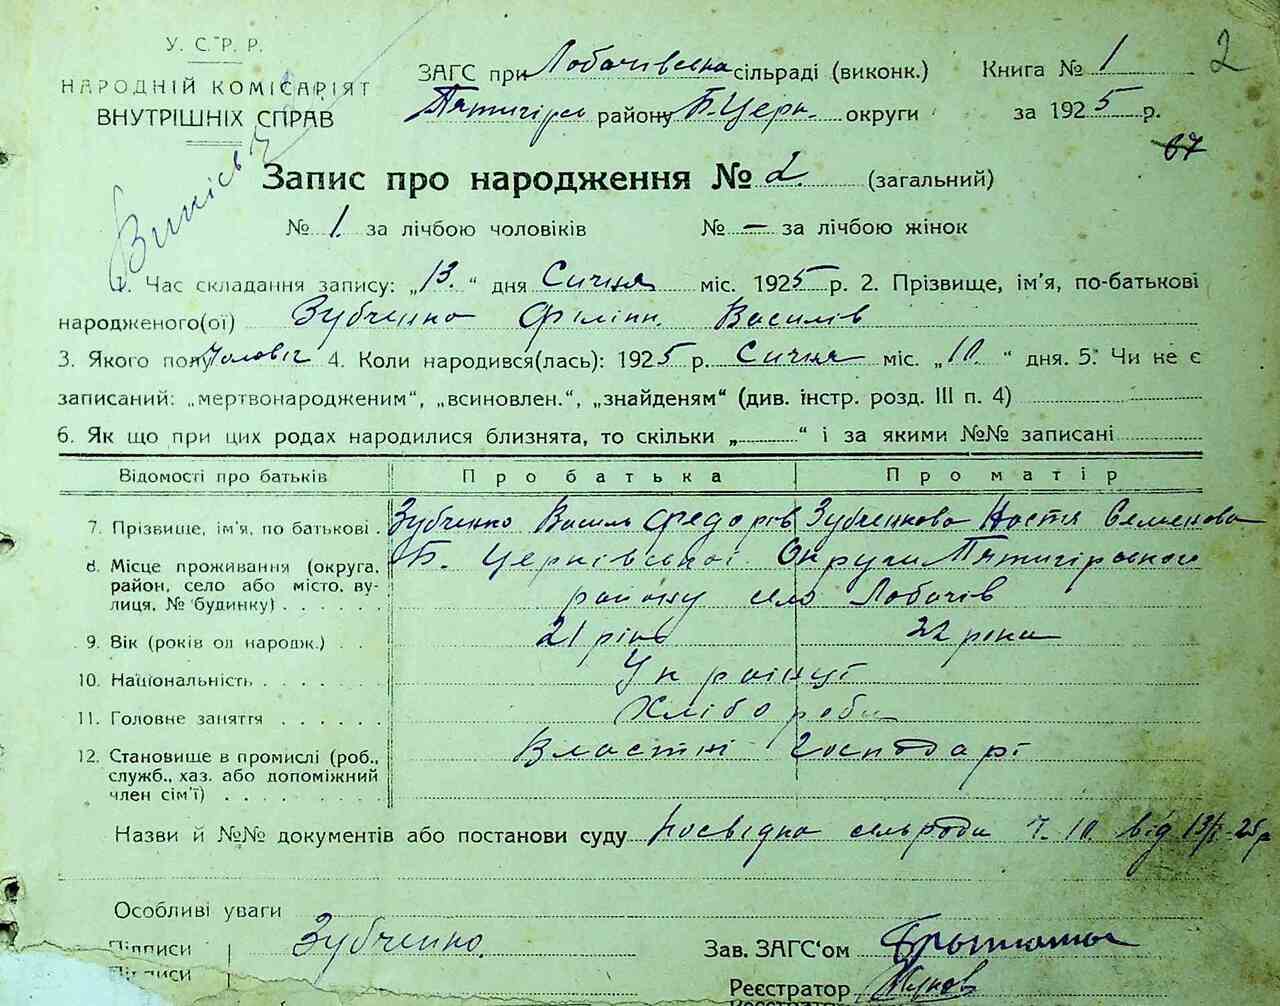 У. С. Р. Р.
НАРОДНІЙ КОМІСАРІЯТ
ВНУТРІШНІХ СПРАВ
ЗАГС при Лобачівська сільраді (виконк.) Книга № 1 2
Пятигірсь району Б. Церк. округи за 1925 р.
67
Запис про народження № 2. (загальний)
№ 1. за лічбою чоловіків № — за лічбою жінок
1. Час складання запису: „13.“ дня Сичня міс. 1925 р. 2. Прізвище, ім'я, по-батькові
народженого(ої) Зубченко Філіпп. Василів
3. Якого полу Чоловіч 4. Коли народився(лась): 1925 р. Сичня міс. „10.“ дня. 5. Чи не є
записаний: „мертвонародженим“, „всиновлен.“, „знайденям“ (див. інстр. розд. III п. 4)
6. Як що при цих родах народилися близнята, то скільки „ “ і за якими №№ записані
Відомості про батьків Про батька Про матір
7. Прізвище, ім'я, по батькові. Зубченко Василь Федорів Зубченкова Настя Семенова
8. Місце проживання (округа, Б. Церківської Округи Пятигірського
район, село або місто, ву- району село Лобачів
лиця, № будинку)
9. Вік (років од народж.) 21 рік 22 роки
10. Національність Українці
11. Головне заняття Хлібороби
12. Становище в промислі (роб., Властні господарі
служб., хаз. або допоміжний
член сім'ї)
Назви й №№ документів або постанови суду Посвідка сельради Ч. 10. від 13/I-25р
Особливі уваги
Підписи Зубченко. Зав. ЗАГС'ом
Підписи Реєстратор